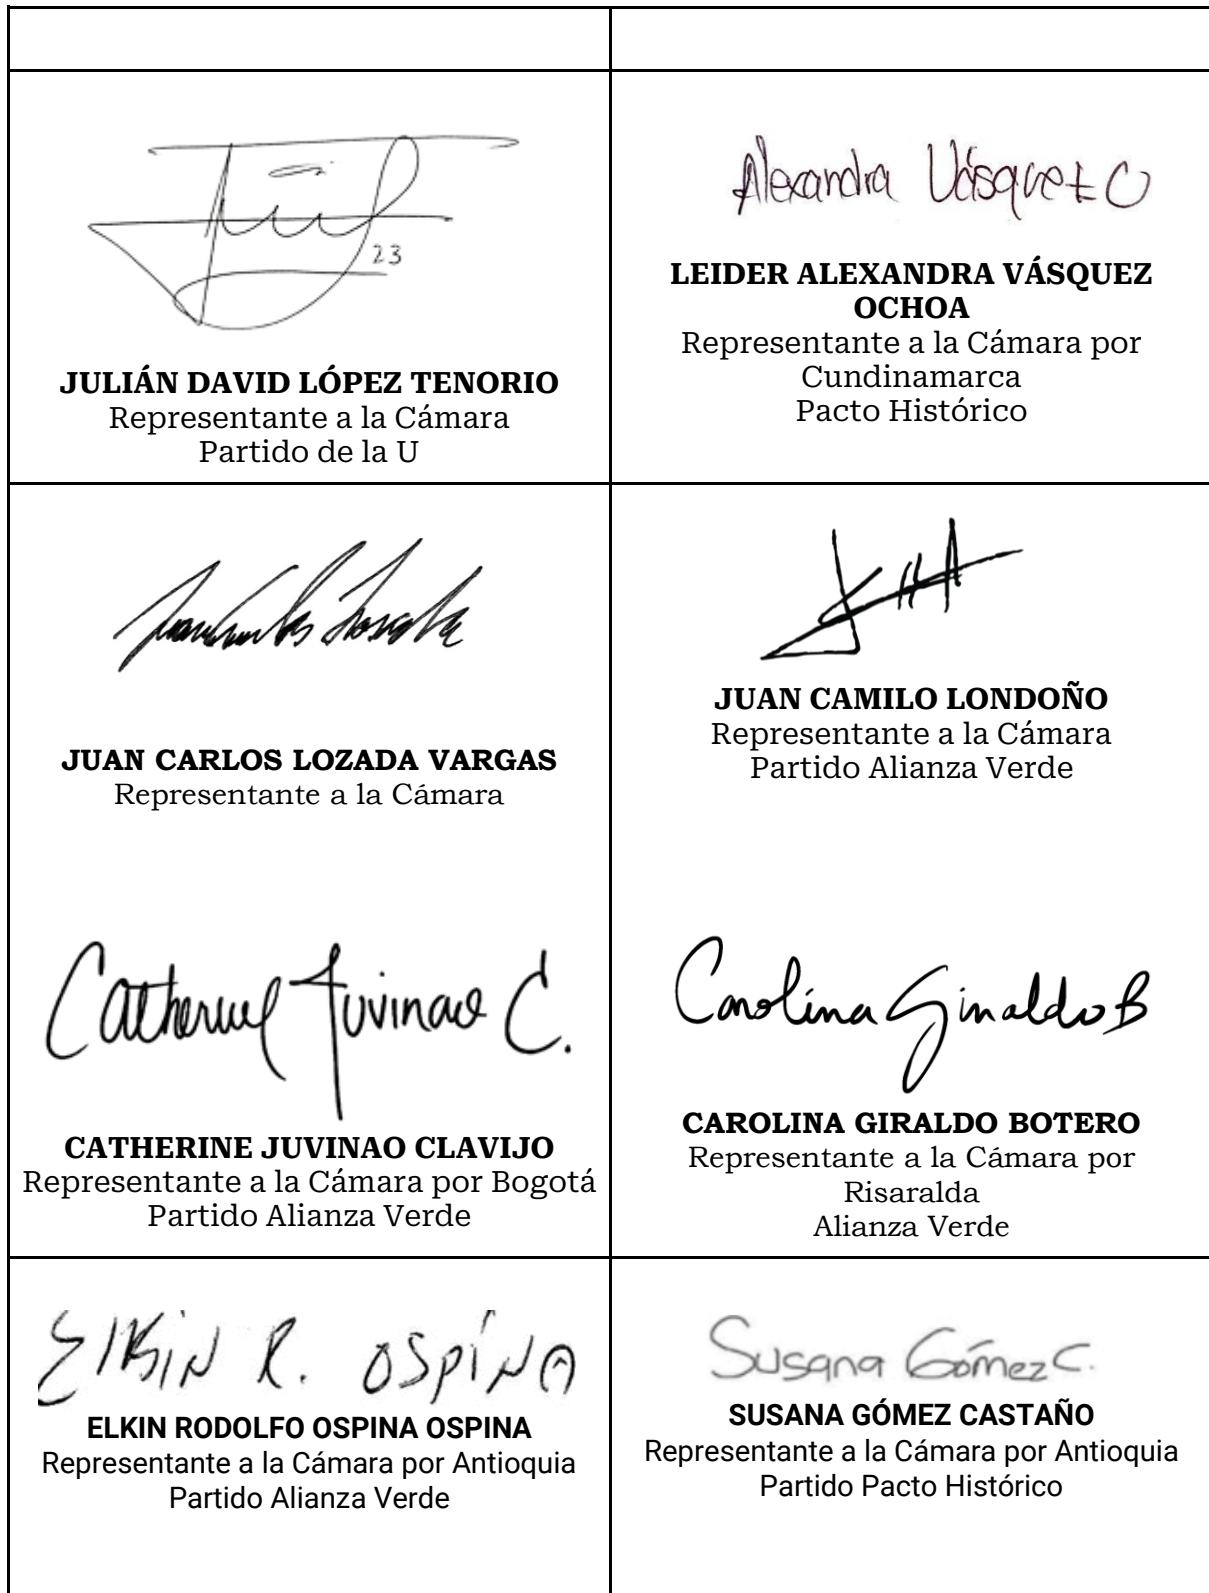 23
JULIÁN DAVID LÓPEZ TENORIO
Representante a la Cámara
Partido de la U
Alexandra Vásquez O
LEIDER ALEXANDRA VÁSQUEZ
OCHOA
Representante a la Cámara por
Cundinamarca
Pacto Histórico
JUAN CARLOS LOZADA VARGAS
Representante a la Cámara
JUAN CAMILO LONDOÑO
Representante a la Cámara
Partido Alianza Verde
Catherine Juvinao C.
CATHERINE JUVINAO CLAVIJO
Representante a la Cámara por Bogotá
Partido Alianza Verde
Carolina Giraldo B
CAROLINA GIRALDO BOTERO
Representante a la Cámara por
Risaralda
Alianza Verde
Elkin R. OSpiNA
ELKIN RODOLFO OSPINA OSPINA
Representante a la Cámara por Antioquia
Partido Alianza Verde
Susana Gómez C.
SUSANA GÓMEZ CASTAÑO
Representante a la Cámara por Antioquia
Partido Pacto Histórico